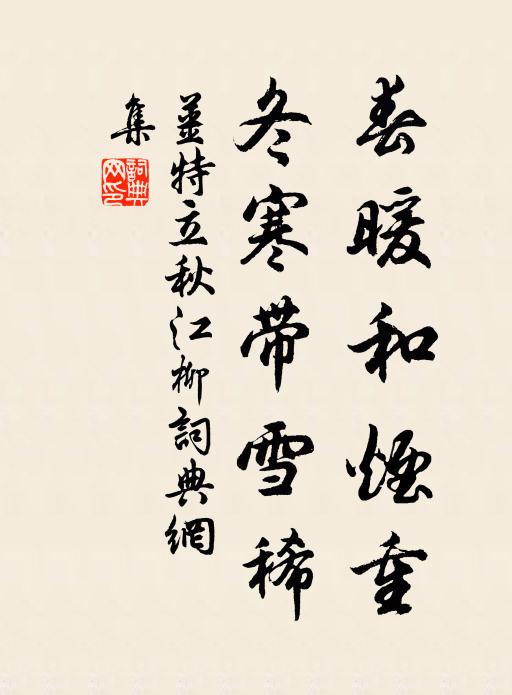 春暖和煙重
冬寒帶雪稀
薑特立秋江柳詞典網
集
詞典
网印